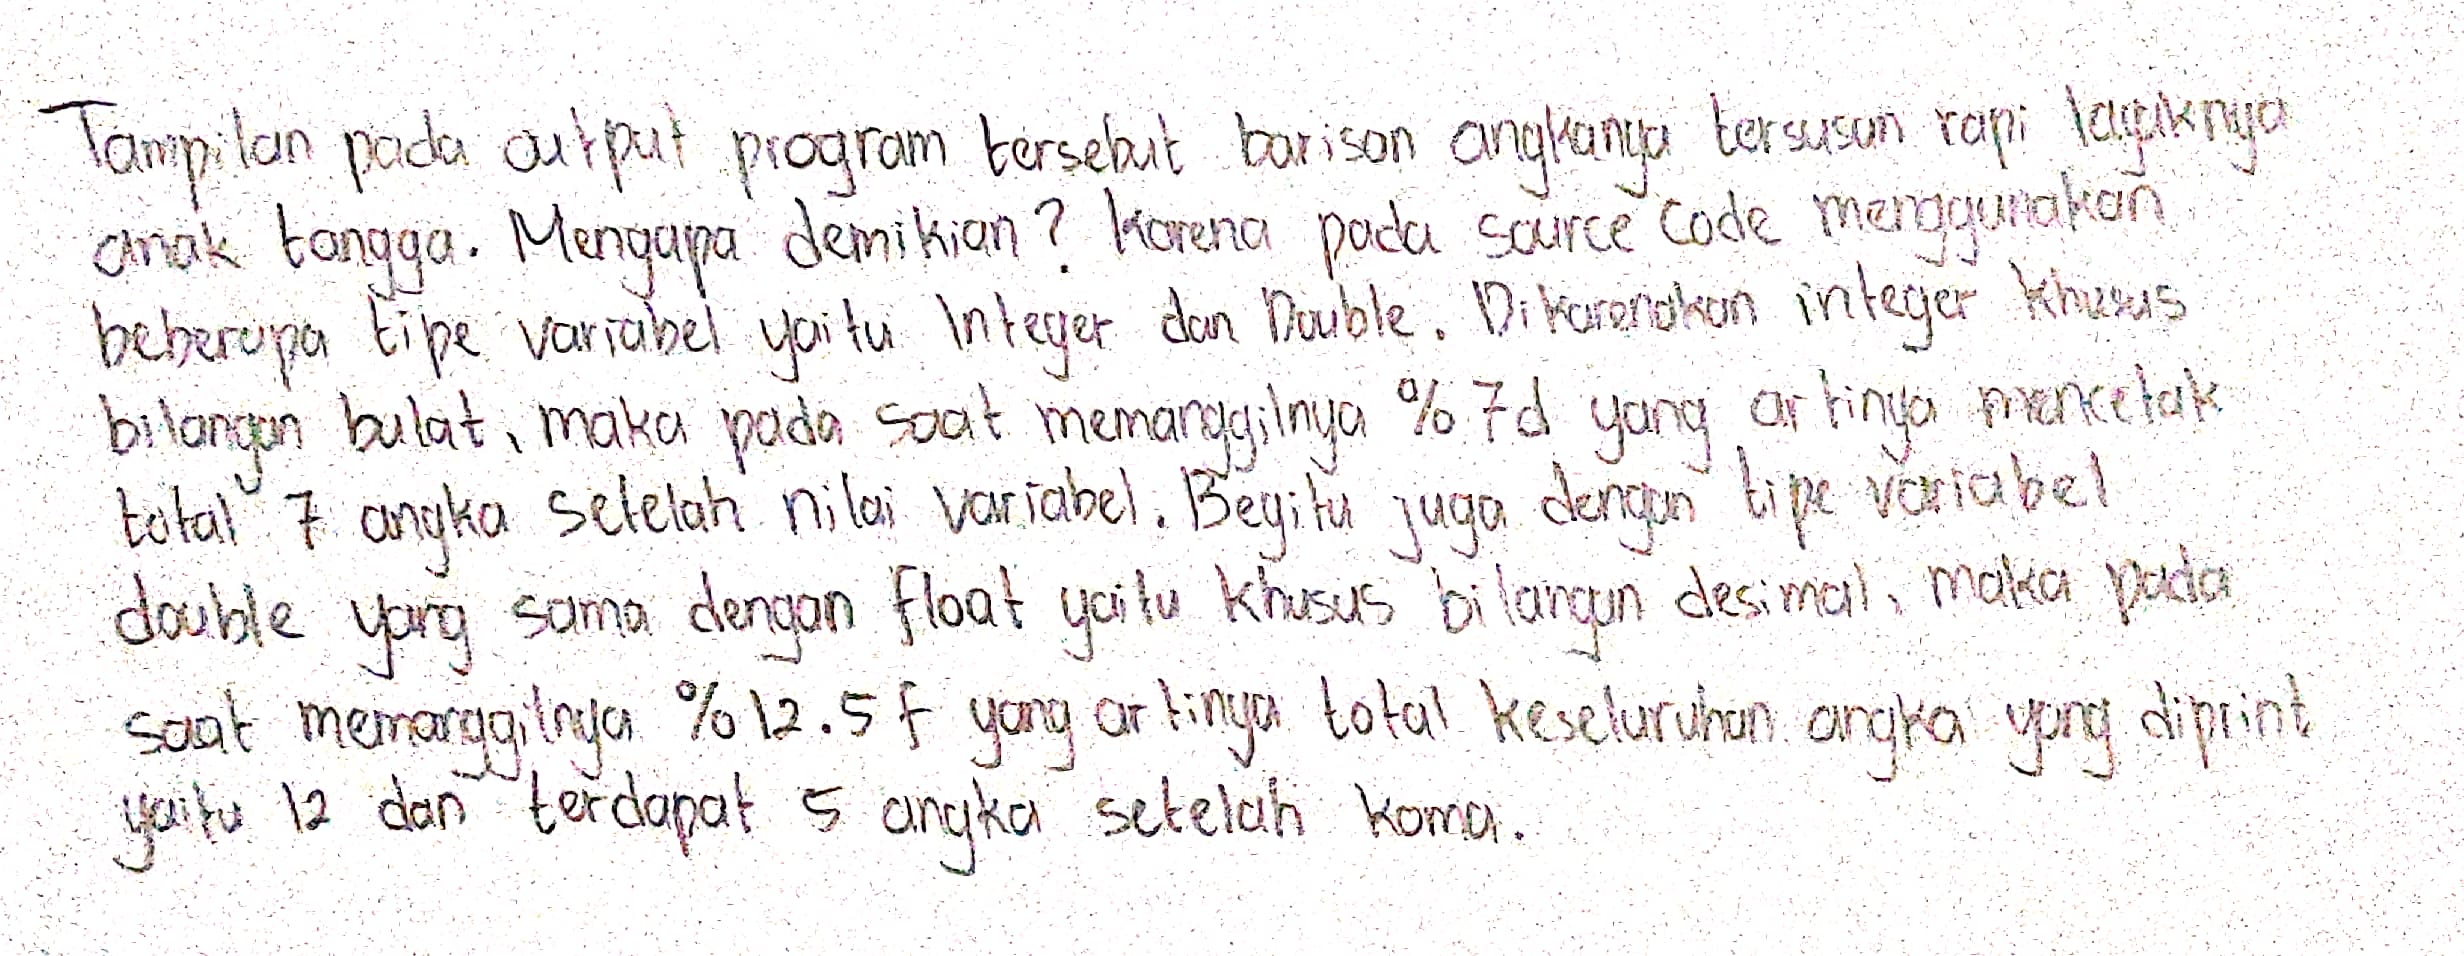 Tampilan pada output program tersebut barisan angkanya tersusun rapi layaknya
anak tangga. Mengapa demikian? Karena pada source code menggunakan
beberapa tipe variabel yaitu Integer dan Double. Dikarenakan integer khusus
bilangan bulat, maka pada saat memanggilnya %7d yang artinya mencetak
total 7 angka setelah nilai variabel. Begitu juga dengan tipe variabel
double yang sama dengan float yaitu khusus bilangan desimal, maka pada
saat memanggilnya %12.5f yang artinya total keseluruhan angka yang diprint
yaitu 12 dan terdapat 5 angka setelah koma.